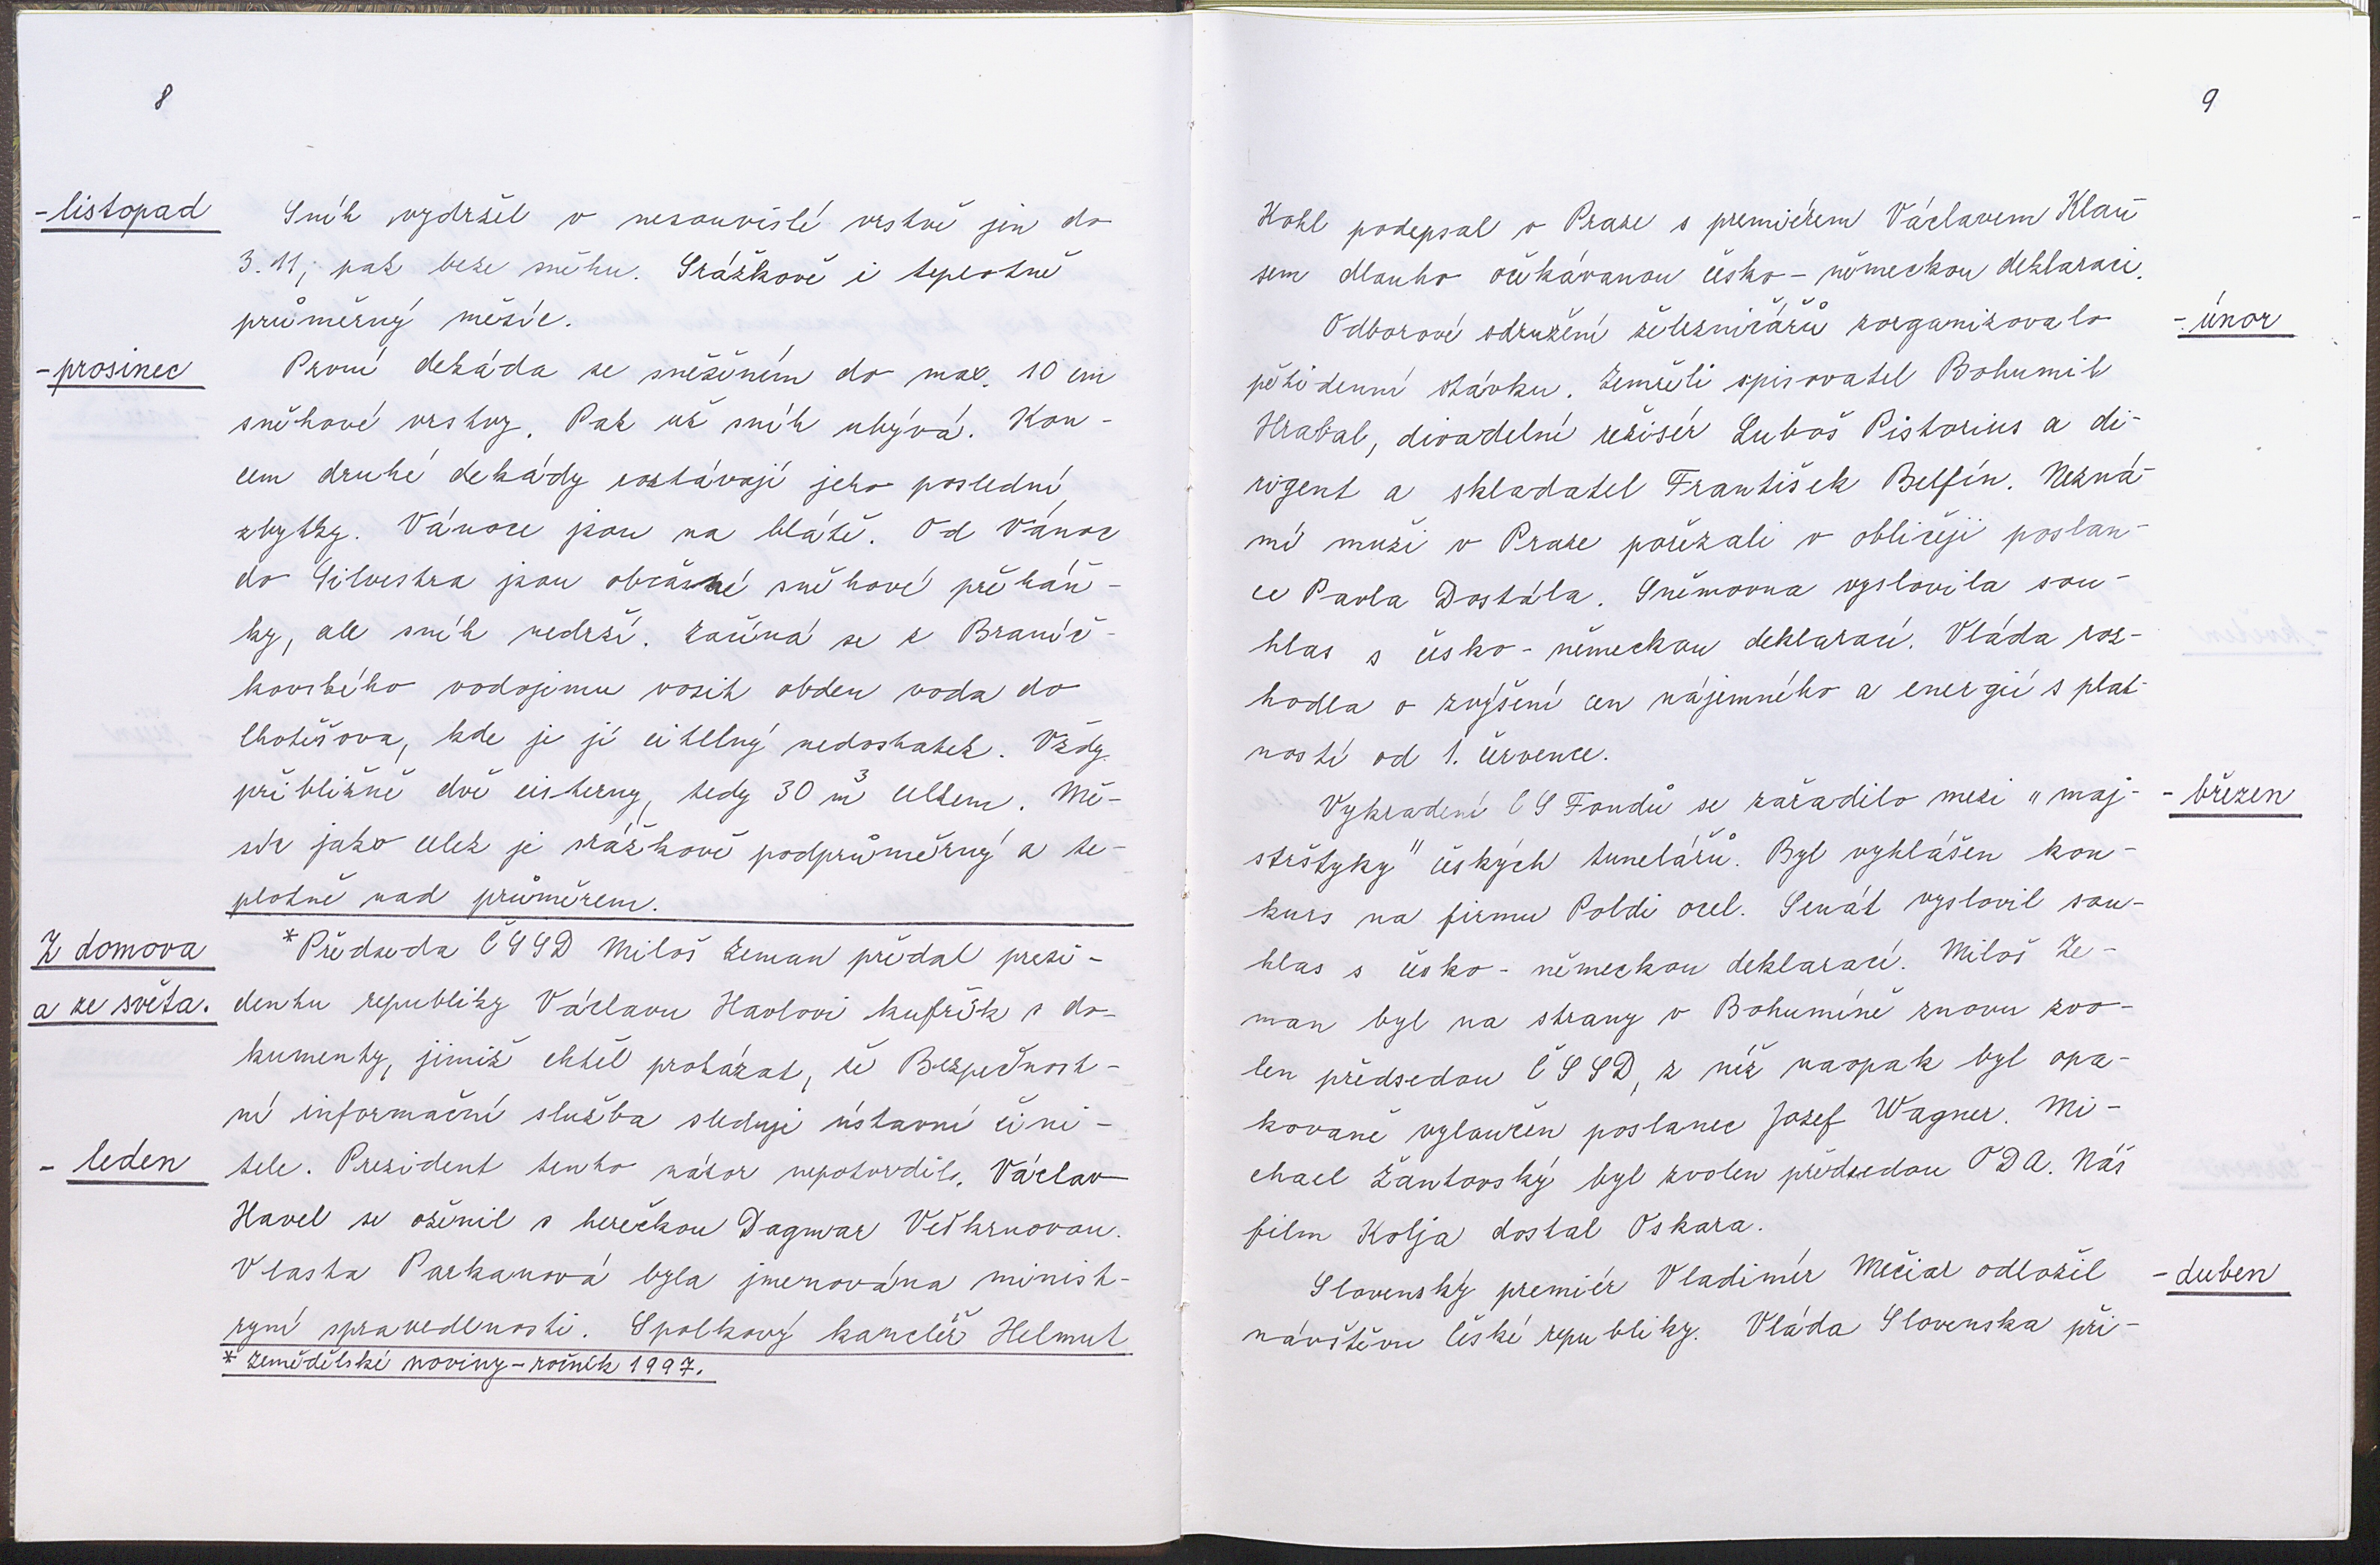 8
- listopad Sníh vydržel v nesouvislé vrstvě jen do
3. 11, pak beze sněhu. Srážkově i teplotně
průměrný měsíc.
- prosinec První dekáda se sněžením do max. 10 cm
sněhové vrstvy. Pak už sníh ubývá. Kon-
cem druhé dekády zůstávají jeho poslední
zbytky. Vánoce jsou na blátě. Od Vánoc
do Silvestra jsou občasné sněhové přeháň-
ky, ale sníh nedrží. Začíná se z Branič-
kovského vodojemu vozit obden voda do
Lhotišova, kde je jí citelný nedostatek. Vždy
přibližně dvě cisterny, tedy 30 m³ celkem. Mě-
síc jako celek je srážkově podprůměrný a te-
plotně nad průměrem.
Z domova *Předseda ČSSD Miloš Zeman předal prezi-
a ze světa. dentu republiky Václavu Havlovi kufřík s do-
kumenty, jimiž chtěl prokázat, že Bezpečnost-
ní informační služba sleduje ústavní čini-
- leden tele. Prezident tento názor nepotvrdil. Václav
Havel se oženil s herečkou Dagmar Veškrnovou.
Vlasta Parkanová byla jmenována minist-
ryní spravedlnosti. Spolkový kancléř Helmut
* Zemědělské noviny - ročník 1997.
9
Kohl podepsal v Praze s premiérem Václavem Klau-
sem dlouho očekávanou česko - německou deklaraci.
Odborové sdružení železničářů zorganizovalo - únor
pětidenní stávku. Zemřeli spisovatel Bohumil
Hrabal, divadelní režisér Luboš Pistorius a di-
rigent a skladatel František Belfín. Nezná-
mí muži v Praze pořezali v obličeji poslan-
ce Pavla Dostála. Sněmovna vyslovila sou-
hlas s česko - německou deklarací. Vláda roz-
hodla o zvýšení cen nájemného a energií s plat-
ností od 1. července.
Vykradení CS Fondů se zařadilo mezi "maj- - březen
strštyky" českých tunelářů. Byl vyhlášen kon-
kurs na firmu Poldi ocel. Senát vyslovil sou-
hlas s česko - německou deklarací. Miloš Ze-
man byl na strany v Bohumíně znovu zvo-
len předsedou ČSSD, z níž naopak byl opa-
kovaně vyloučen poslanec Jozef Wagner. Mi-
chael Žantovský byl zvolen předsedou ODA. Náš
film Kolja dostal Oskara.
Slovenský premiér Vladimír Mečiar odložil - duben
návštěvu České republiky. Vláda Slovenska při-